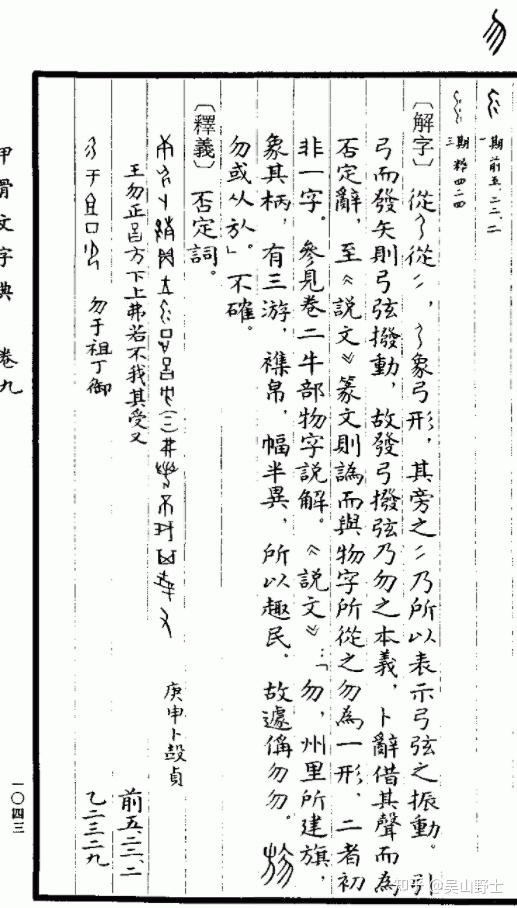 勿
一期 前五·二二·二
三期 粹四二四
〔解字〕從 從〻, 象弓形,其旁之〻乃所以表示弓弦之振動。引
弓而發矢則弓弦撥動,故發弓撥弦乃勿之本義,卜辭借其聲而為
否定辭,至《說文》篆文則譌而與物字所從之勿為一形,二者初
非一字。參見卷二牛部物字說解。《說文》:「勿,州里所建旗,
象其柄,有三游,襍帛,幅半異,所以趣民,故遽偁勿勿。
勿或从於」。不確。
〔釋義〕否定詞。
(三) 庚申卜㱿貞
王勿正𢀛方下上弗若不我其受又 前五·二二·二
勿于祖丁御 乙二三二九
甲骨文字典 卷九
一〇四三
知乎 @吴山野士